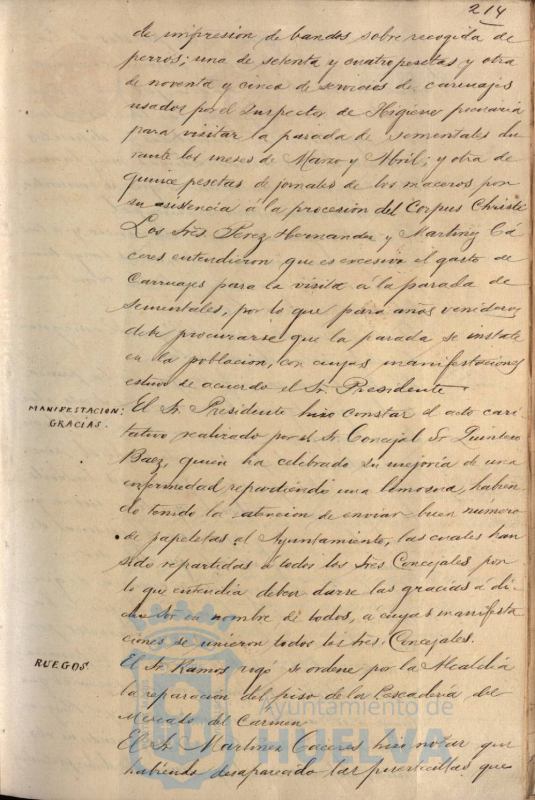 214
de impresion de bandos sobre recogida de
perros; una de setenta y cuatro pesetas y otra
de noventa y cinco de servicios de carruajes
usados por el Inspector de Higiene pecuaria
para visitar la parada de sementales du
rante los meses de Marzo y Abril; y otra de
quince pesetas de jornales de los maceros por
su asistencia á la procesion del Corpus Christi
Los Sres Perez Hernandez y Martinez Cá
ceres entendieron que es excesivo el gasto de
Carruajes para la visita á la parada de
sementales, por lo que para años venideros
debe procurarse que la parada se instale
en la poblacion, con cuyas manifestaciones
estuvo de acuerdo el Sr. Presidente.
MANIFESTACION:
GRACIAS.
El Sr. Presidente hizo constar el acto cari
tativo realizado por el Sr. Concejal Sr Quintero
Baez, quien ha celebrado su mejoría de una
enfermedad repartiendo una limosna, habien
do tenido la atencion de enviar buen número
de papeletas al Ayuntamiento, las cuales han
sido repartidas a todos los Sres Concejales por
lo que entendia deben darse las gracias á di
cho Sr. en nombre de todos, a cuyas manifesta
ciones se unieron todos los Sres. Concejales.
RUEGOS.
El Sr. Ramos rogó se ordene por la Alcaldia
la reparacion del piso de la Pescadería del
Mercado del Carmen
El Sr. Martinez Caceres hizo notar que
habiendo desaparecido las puertecillas que
Ayuntamiento de
HUELVA